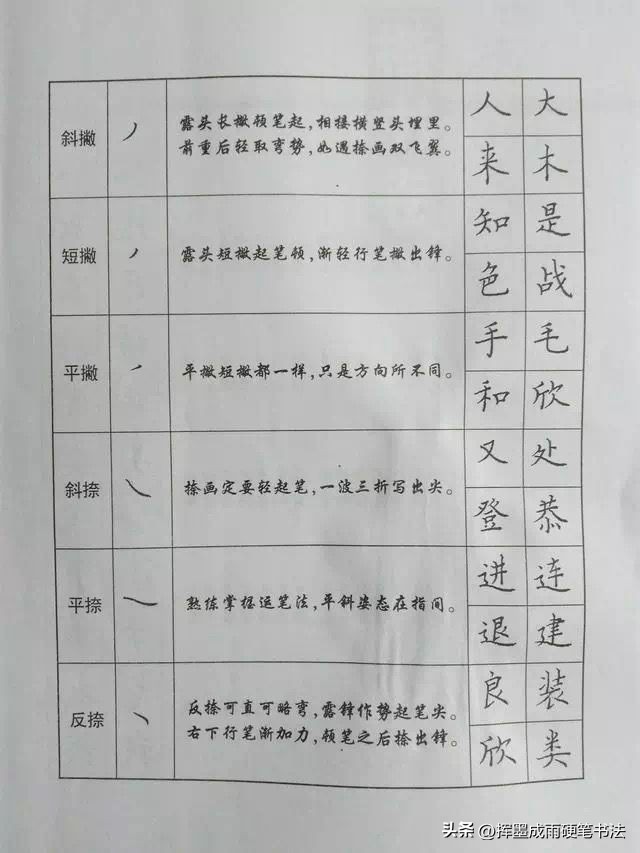 斜撇
露头长撇顿笔起，相接横竖头埋里。
前重后轻取弯势，如遇捺画双飞翼。
人 大
来 木
短撇
露头短撇起笔顿，渐轻行笔撇出锋。
知 是
色 战
平撇
平撇短撇都一样，只是方向所不同。
手 毛
和 欣
斜捺
捺画定要轻起笔，一波三折写出尖。
又 处
登 恭
平捺
熟练掌握运笔法，平斜姿态在指间。
进 连
退 建
反捺
反捺可直可略弯，露锋作势起笔尖。
右下行笔渐加力，顿笔之后捺出锋。
良 装
欣 类
头条 @挥墨成雨硬笔书法